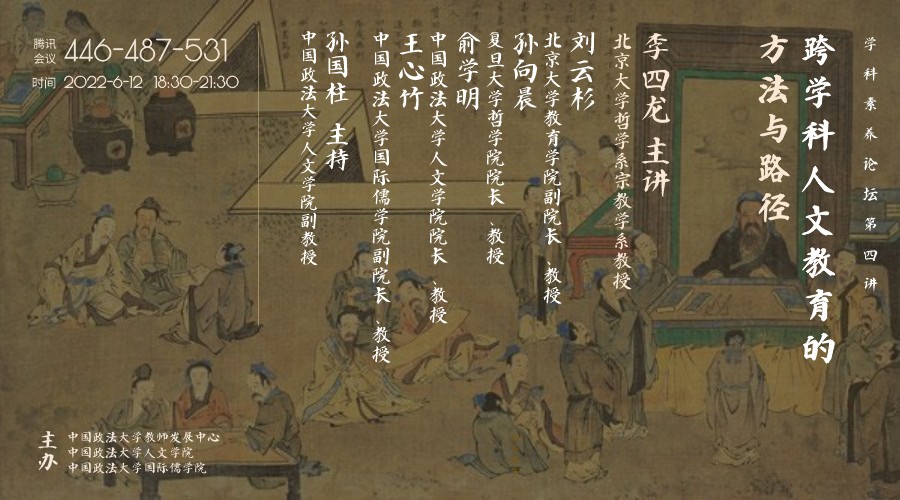 学科素养论坛第四讲
跨学科人文教育的
方法与路径
李四龙 主讲
北京大学哲学系宗教学系教授
刘云杉
北京大学教育学院副院长、教授
孙向晨
复旦大学哲学院院长、教授
俞学明
中国政法大学人文学院院长、教授
王心竹
中国政法大学国际儒学院副院长、教授
孙国柱 主持
中国政法大学人文学院副教授
腾讯
会议 446-487-531
时间 2022-6-12 18:30-21:30
主办
中国政法大学教师发展中心
中国政法大学人文学院
中国政法大学国际儒学院